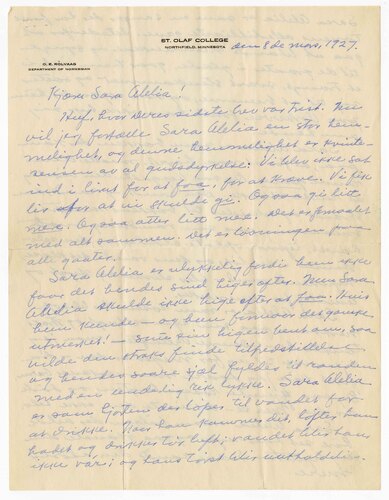 ST. OLAF COLLEGE
NORTHFIELD, MINNESOTA
O. E. ROLVAAG
DEPARTMENT OF NORWEGIAN
den 8 de mars, 1927.
Kjære Sara Alelia!
Huf, hvor deres sidste brev var trist. Nu
vil jeg fortælle Sara Alelia en stor hem-
melighet, og denne hemmelighet er kvinte-
sensen av al gudsdyrkelse: Vi blev ikke sat
ind i livet for at faa, for at kræve. Vi fik
liv for at vi skulde gi. Og saa gi litt
mer. Og saa atter litt mer. Det er formaalet
med alt sammen. Det er løsningen paa
all gaater.
Sara Alelia er ulykkelig fordi hun ikke
faar det hendes sind higer efter. Men Sara
Alelia skulde ikke hige efter at faa. Hvis
hun kunde — og hun formaar det ganske
utmerket! — snu sin higen bent om, saa
vilde den straks finde tilfredsstillelse
og hendes saare sjæl fyldes til randen
med en uendelig rik lykke. Sara Alelia
er som hjorten der løper til vandet for
at drikke. Naar han kommer dit, løfter han
hodet og drikker tør luft; vandet blir han
ikke var; og hans tørst blir